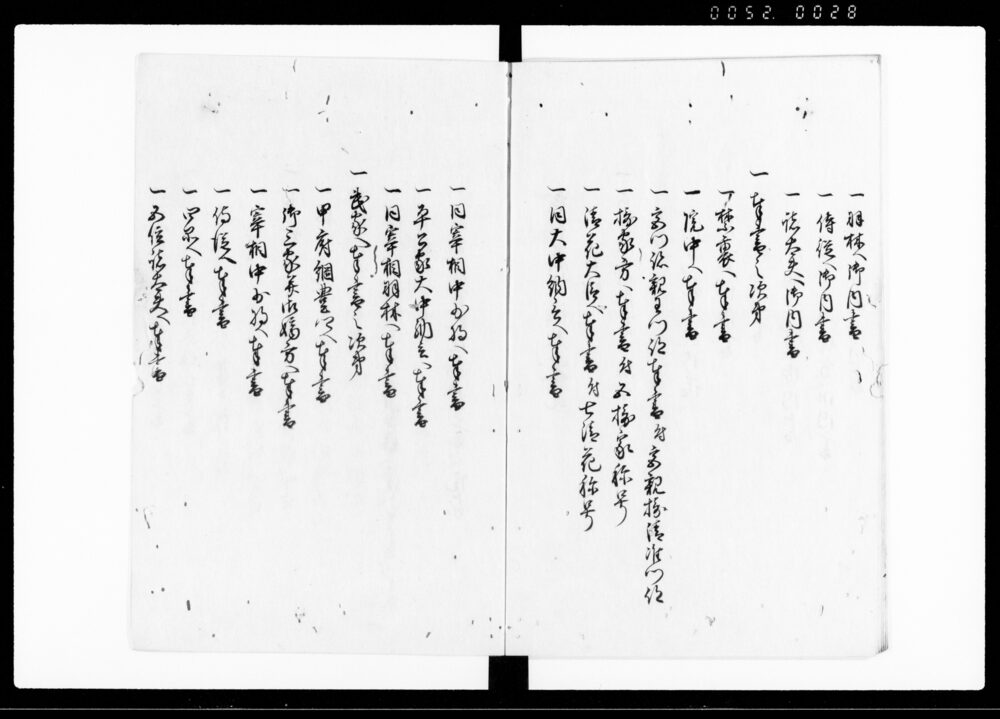 0052. 0028
一羽林へ御内書
一侍従へ御内書
一諸大夫へ御内書
一奉書之次第
一禁裏へ奉書
一院中へ奉書
一宮門跡親王門跡奉書付宮親摂清准門跡
一摂家方へ奉書付五摂家称号
一清花大臣へ奉書付七清花称号
一同大中納言へ奉書
一同宰相中少将へ奉書
一平公家大中納言へ奉書
一同宰相羽林へ奉書
一武家へ奉書之次第
一甲府綱豊公へ奉書
一御三家并御嫡方へ奉書
一宰相中少将へ奉書
一侍従へ奉書
一四品へ奉書
一五位諸大夫へ奉書